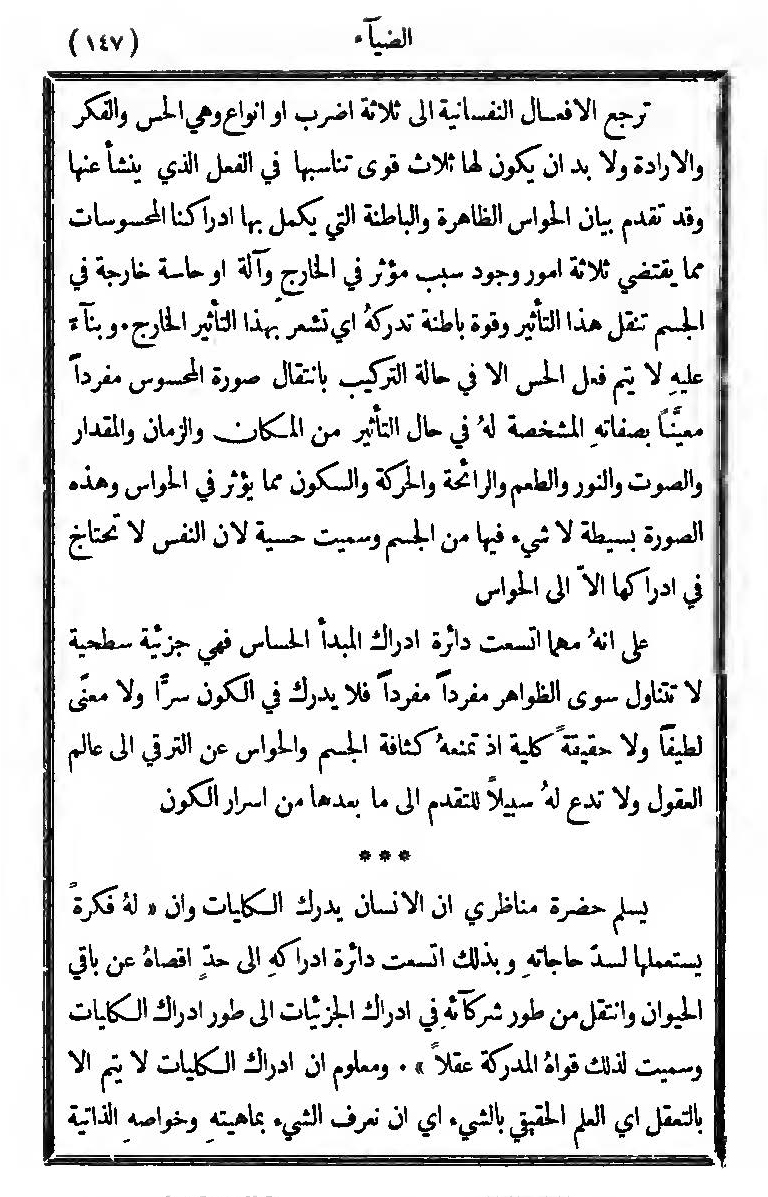 الضيآء
(١٤٧)
ترجع الافعال النفسانية الى ثلاثة اضرب او انواع وهي الحس والفكر
والارادة ولا بد ان يكون لها ثلاث قوى تناسبها في الفعل الذي ينشأ عنها
وقد تقدم بيان الحواس الظاهرة والباطنة التي يكمل بها ادراكنا المحسوسات
مما يقتضي ثلاثة امور وجود سبب مؤثر في الخارج وآلة او حاسة خارجة في
الجسم تنقل هذا التأثير وقوة باطنة تدركهُ اي تشعر بهذا التأثير الخارج ٠ وبنآءً
عليهِ لا يتم فعل الحس الا في حالة التركيب بانتقال صورة المحسوس مفرداً
معيَّناً بصفاتهِ المشخصة لهُ في حال التأثير من المكان والزمان والمقدار
والصوت والنور والطعم والرائحة والحركة والسكون مما يؤثر في الحواس وهذه
الصورة بسيطة لا شيء فيها من الجسم وسميت حسية لان النفس لا تحتاج
في ادراكها الاّ الى الحواس
على انهُ مهما اتسعت دائرة ادراك المبدأ الحساس فهي جزئية سطحية
لا تتناول سوى الظواهر مفرداً مفرداً فلا يدرك في الكون سرًّا ولا معنًى
لطيفاً ولا حقيقةً كلية اذ تمنعهُ كثافة الجسم والحواس عن الترقي الى عالم
العقول ولا تدع لهُ سبيلاً للتقدم الى ما بعدها من اسرار الكون
***
يسلم حضرة مناظري ان الانسان يدرك الكليات وان « لهُ فكرةً
يستعملها لسدّ حاجاتهِ وبذلك اتسعت دائرة ادراكهِ الى حدٍّ اقصاهُ عن باقي
الحيوان وانتقل من طور شركآئهِ في ادراك الجزئيات الى طور ادراك الكليات
وسميت لذلك قواهُ المدركة عقلاً » ٠ ومعلوم ان ادراك الكليات لا يتم الا
بالتعقل اي العلم الحقيقي بالشيء اي ان نعرف الشيء بماهيتهِ وخواصهِ الذاتية